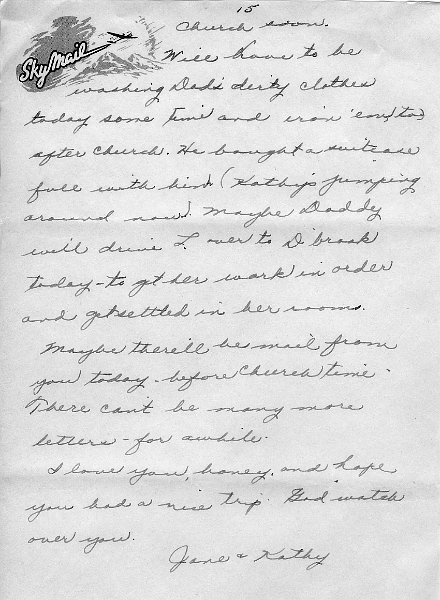 15
Sky Mail
Church soon.
Will have to be
washing Dad's dirty clothes
today some time and iron 'em, too,
after church. He bought a suitcase
full with him. (Kathy's jumping
around now). Maybe Daddy
will drive L. over to D'brook
today - to get her work in order
and get settled in her room.
Maybe there'll be mail from
you today - before Church time.
There can't be many more
letters - for awhile.
I love you, honey, and hope
you had a nice trip. God watch
over you.
Jane & Kathy